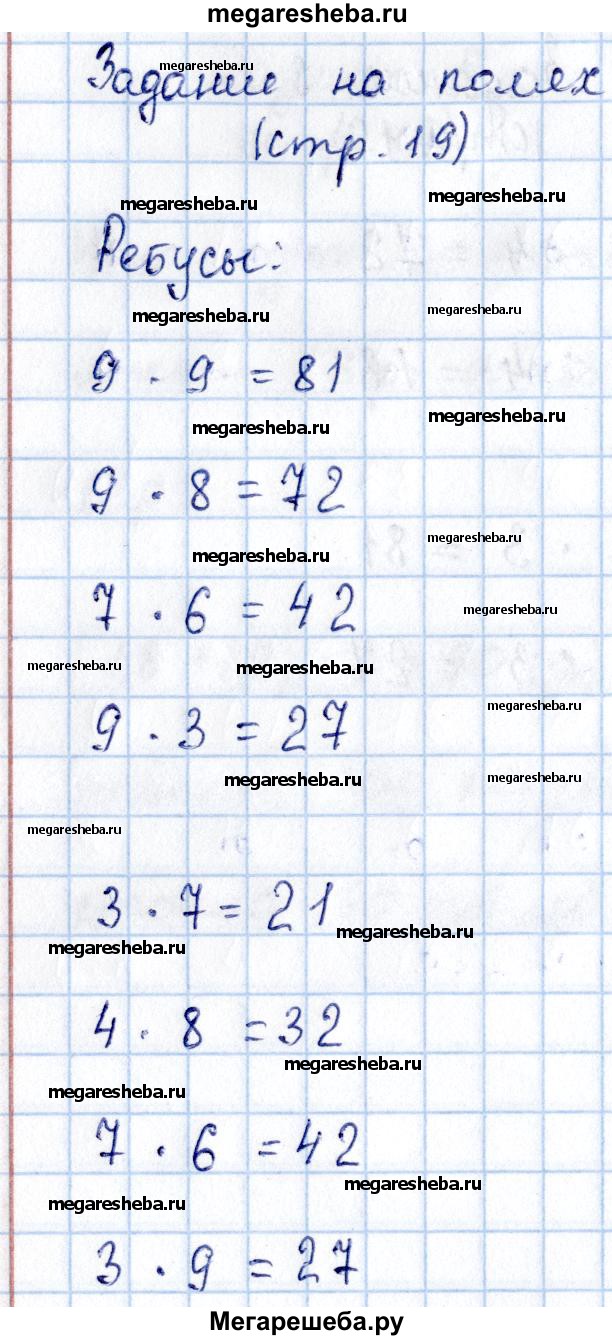 megaresheba.ru
Задание на полях
megaresheba.ru
(стр. 19)
megaresheba.ru
megaresheba.ru
Ребусы:
megaresheba.ru
megaresheba.ru
9 · 9 = 81
megaresheba.ru
megaresheba.ru
9 · 8 = 72
megaresheba.ru
megaresheba.ru
7 · 6 = 42
megaresheba.ru
megaresheba.ru
megaresheba.ru
9 · 3 = 27
megaresheba.ru
megaresheba.ru
megaresheba.ru
megaresheba.ru
3 · 7 = 21
megaresheba.ru
megaresheba.ru
4 · 8 = 32
megaresheba.ru
megaresheba.ru
7 · 6 = 42
megaresheba.ru
megaresheba.ru
3 · 9 = 27
Мегарешеба.ру